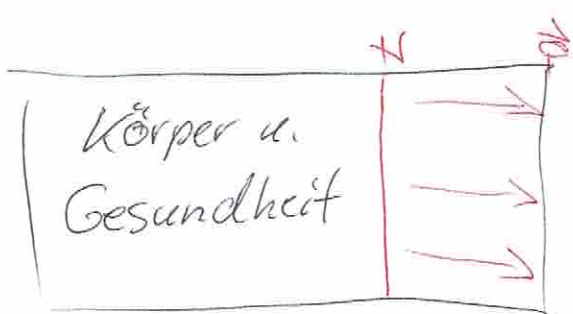 7
10
Körper u.
Gesundheit